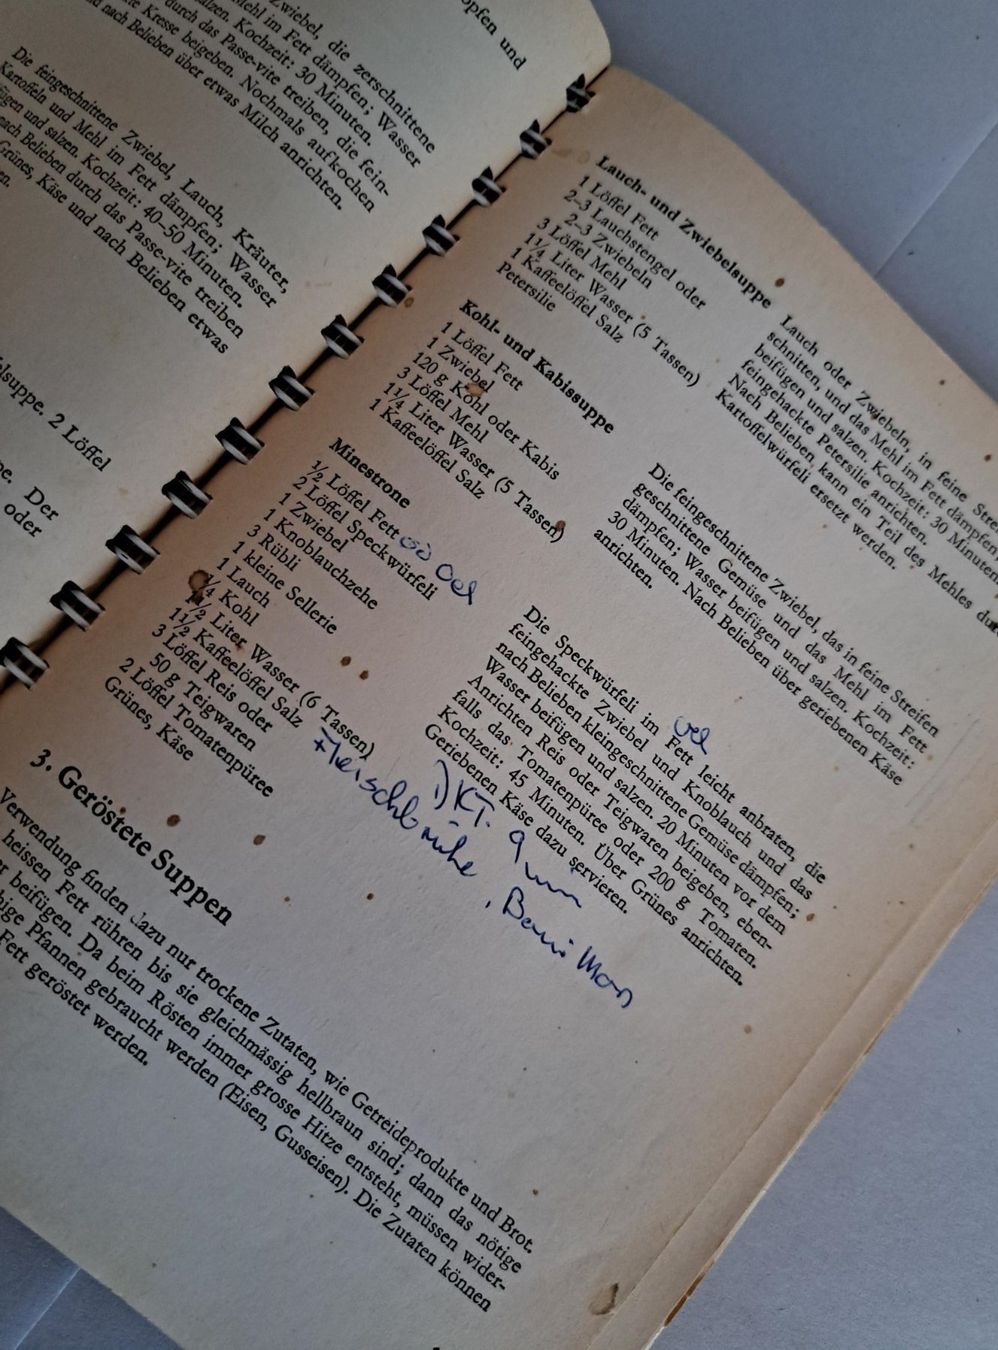 opfen und
Zwiebel, die zerschnittene
Mehl im Fett dämpfen; Wasser
salzen. Kochzeit: 30 Minuten.
durch das Passe-vite treiben, die fein-
Kresse beigeben. Nochmals aufkochen
nach Belieben über etwas Milch anrichten.
Die feingeschnittene Zwiebel, Lauch, Kräuter,
Kartoffeln und Mehl im Fett dämpfen; Wasser
und salzen. Kochzeit: 40–50 Minuten.
nach Belieben durch das Passe-vite treiben
Grünes, Käse und nach Belieben etwas
elsuppe. 2 Löffel
Der
oder
Lauch- und Zwiebelsuppe
1 Löffel Fett
2–3 Lauchstengel oder
2–3 Zwiebeln
3 Löffel Mehl
1¼ Liter Wasser (5 Tassen)
1 Kaffeelöffel Salz
Petersilie
Lauch oder Zwiebeln, in feine
schnitten, und das Mehl im Fett dämpfen,
beifügen und salzen. Kochzeit: 30 Minuten
feingehackte Petersilie anrichten.
Nach Belieben kann ein Teil des Mehles
Kartoffelwürfeli ersetzt werden.
Kohl- und Kabissuppe
1 Löffel Fett
1 Zwiebel
120 g Kohl oder Kabis
3 Löffel Mehl
1¼ Liter Wasser (5 Tassen)
1 Kaffeelöffel Salz
Die feingeschnittene Zwiebel, das in feine Streifen
geschnittene Gemüse und das Mehl im Fett
dämpfen; Wasser beifügen und salzen. Kochzeit:
30 Minuten. Nach Belieben über geriebenen Käse
anrichten.
Minestrone
½ Löffel Fett od Oel
2 Löffel Speckwürfeli
1 Zwiebel
1 Knoblauchzehe
3 Rübli
1 kleine Sellerie
1 Lauch
¼ Kohl
1½ Liter Wasser (6 Tassen)
1½ Kaffeelöffel Salz
3 Löffel Reis oder
50 g Teigwaren
2 Löffel Tomatenpüree
Grünes, Käse
+ Fleischbrühe,
DKT. 9 min
Oel
Die Speckwürfeli im Fett leicht anbraten, die
feingehackte Zwiebel und Knoblauch und das
nach Belieben kleingeschnittene Gemüse dämpfen;
Wasser beifügen und salzen. 20 Minuten vor dem
Anrichten Reis oder Teigwaren beigeben, eben-
falls das Tomatenpüree oder 200 g Tomaten.
Kochzeit: 45 Minuten. Über Grünes anrichten.
Geriebenen Käse dazu servieren.
3. Geröstete Suppen
Verwendung finden dazu nur trockene Zutaten, wie Getreideprodukte und Brot.
heissen Fett rühren bis sie gleichmässig hellbraun sind; dann das nötige
beifügen. Da beim Rösten immer grosse Hitze entsteht, müssen wider-
Pfannen gebraucht werden (Eisen, Gusseisen). Die Zutaten können
Fett geröstet werden.